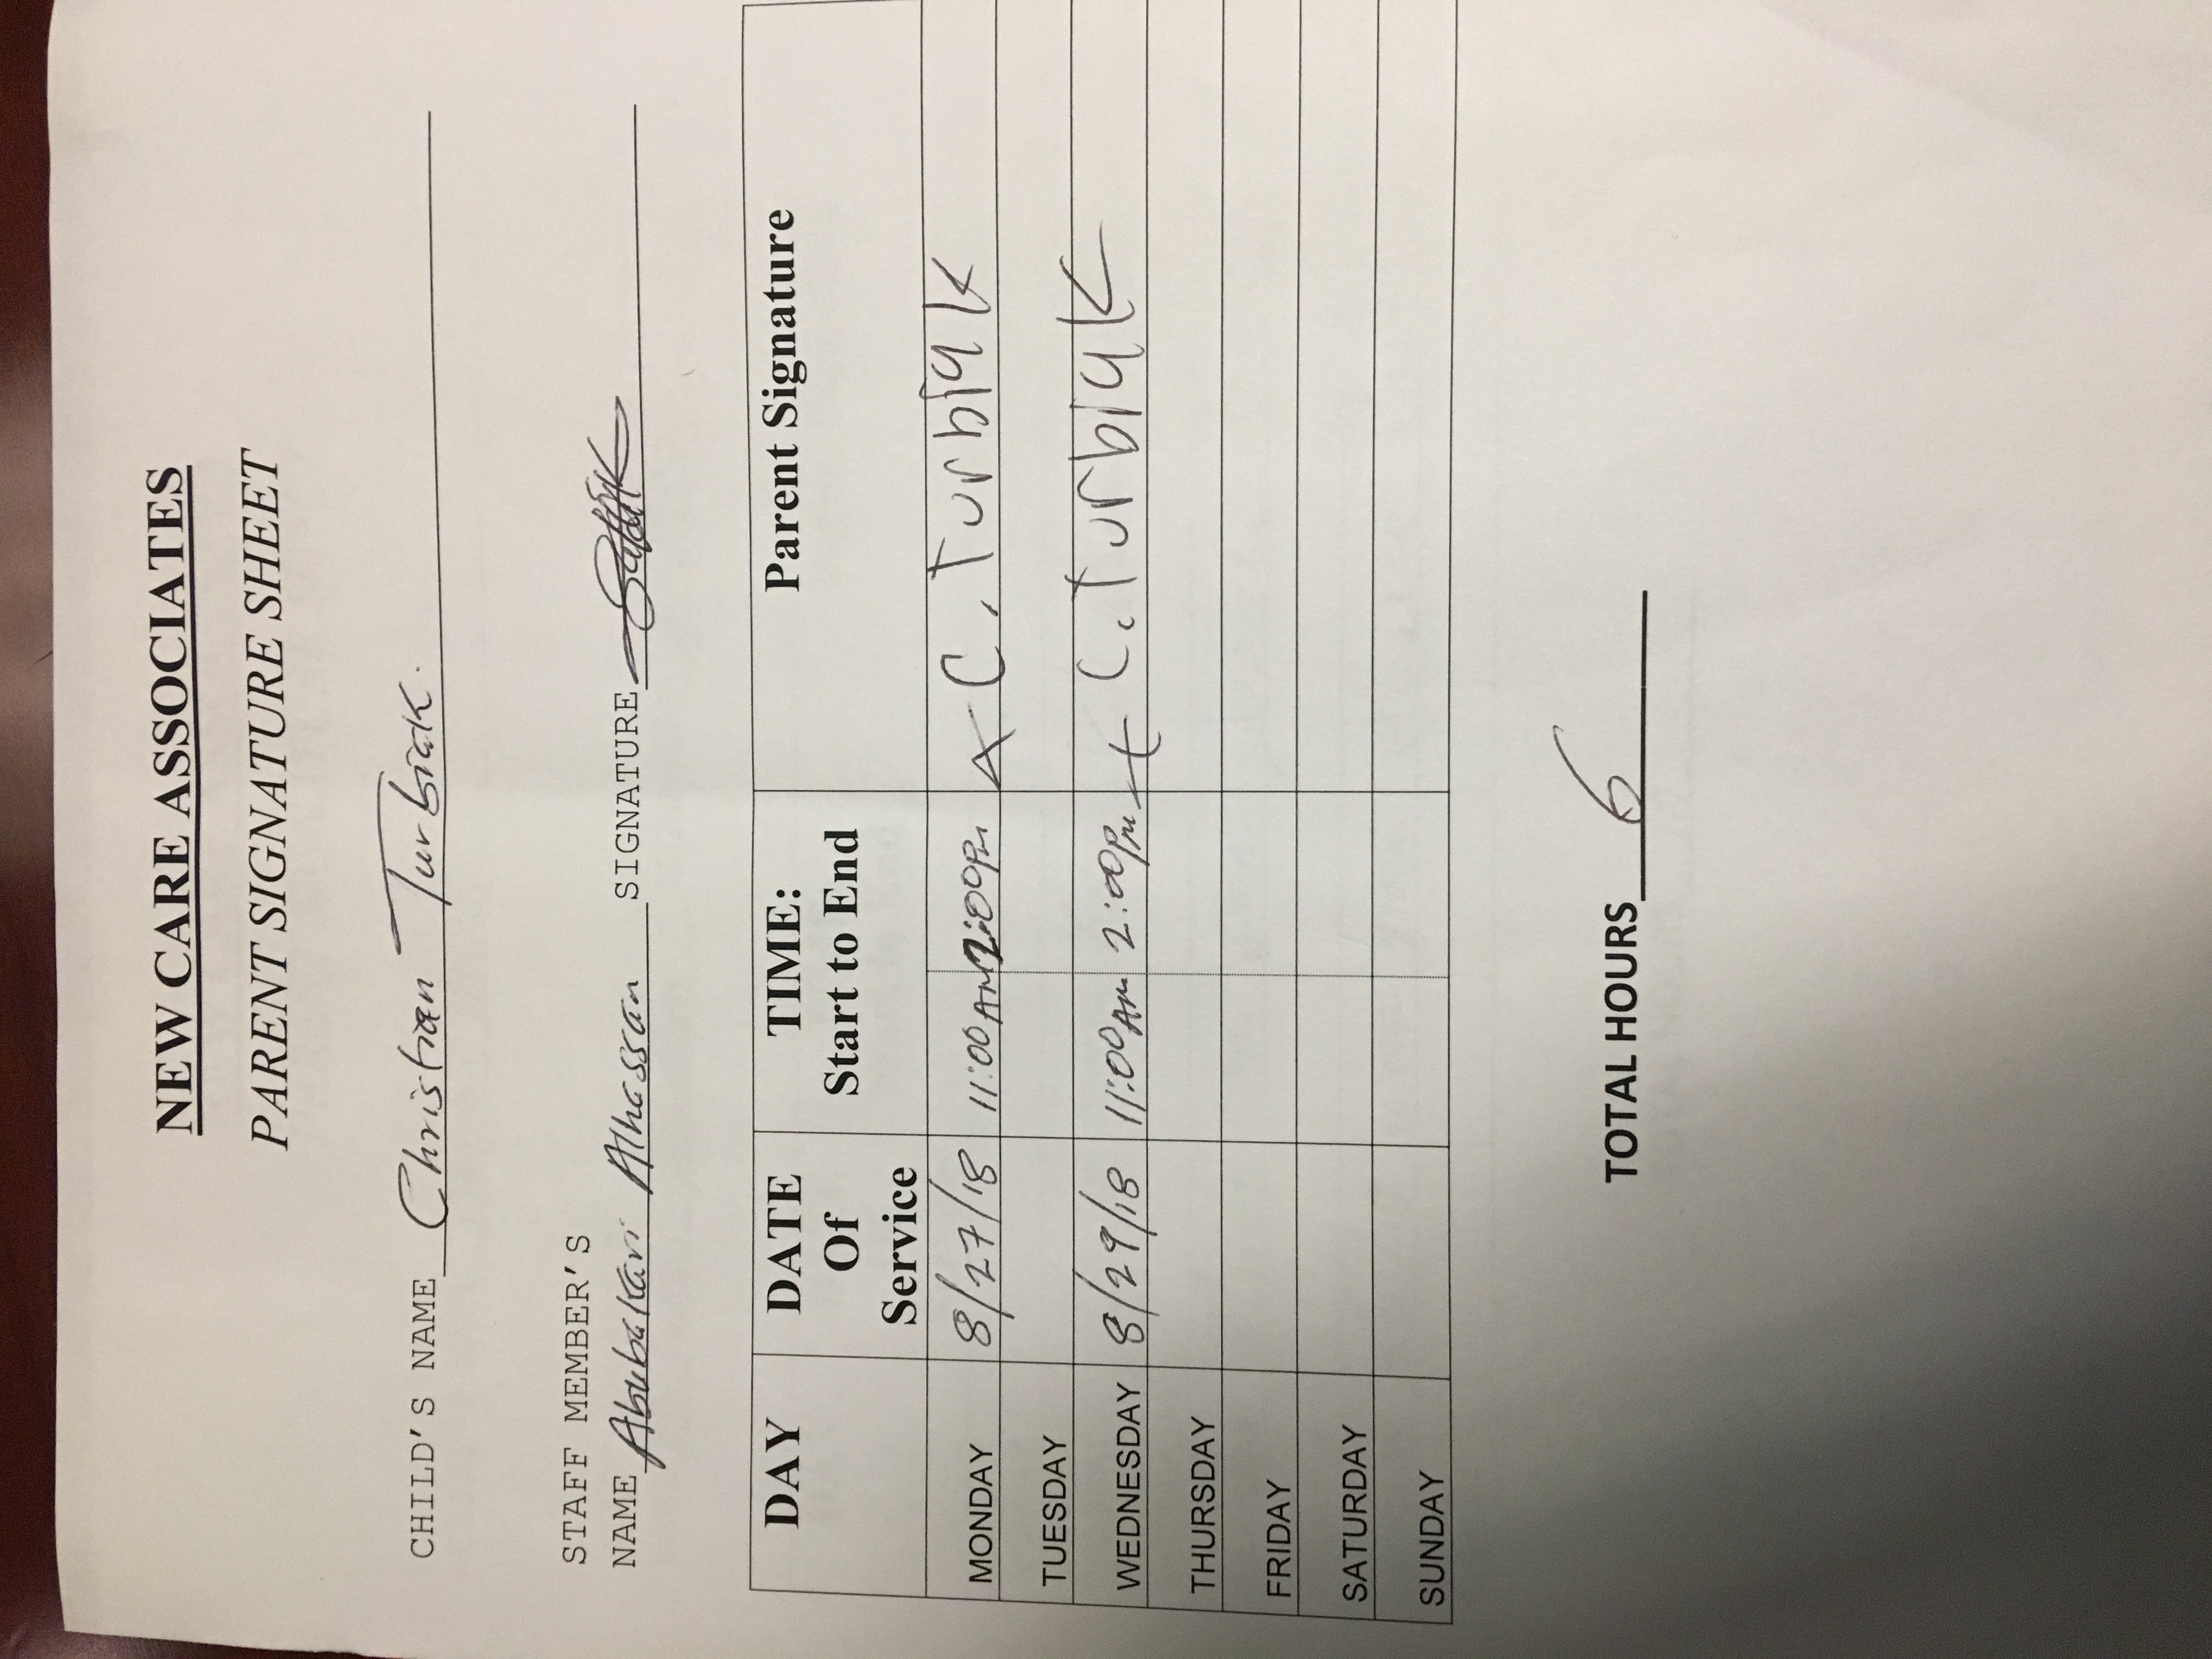 NEW CARE ASSOCIATES
PARENT SIGNATURE SHEET
CHILD'S NAME Christian Turbiak.
STAFF MEMBER'S
NAME Abubakari Alhassan SIGNATURE
DAY DATE Of Service TIME: Start to End Parent Signature
MONDAY 8/27/18 11:00 AM 2:00 PM x C. Turbiak
TUESDAY
WEDNESDAY 8/29/18 11:00 AM 2:00 PM x C. Turbiak
THURSDAY
FRIDAY
SATURDAY
SUNDAY
TOTAL HOURS 6